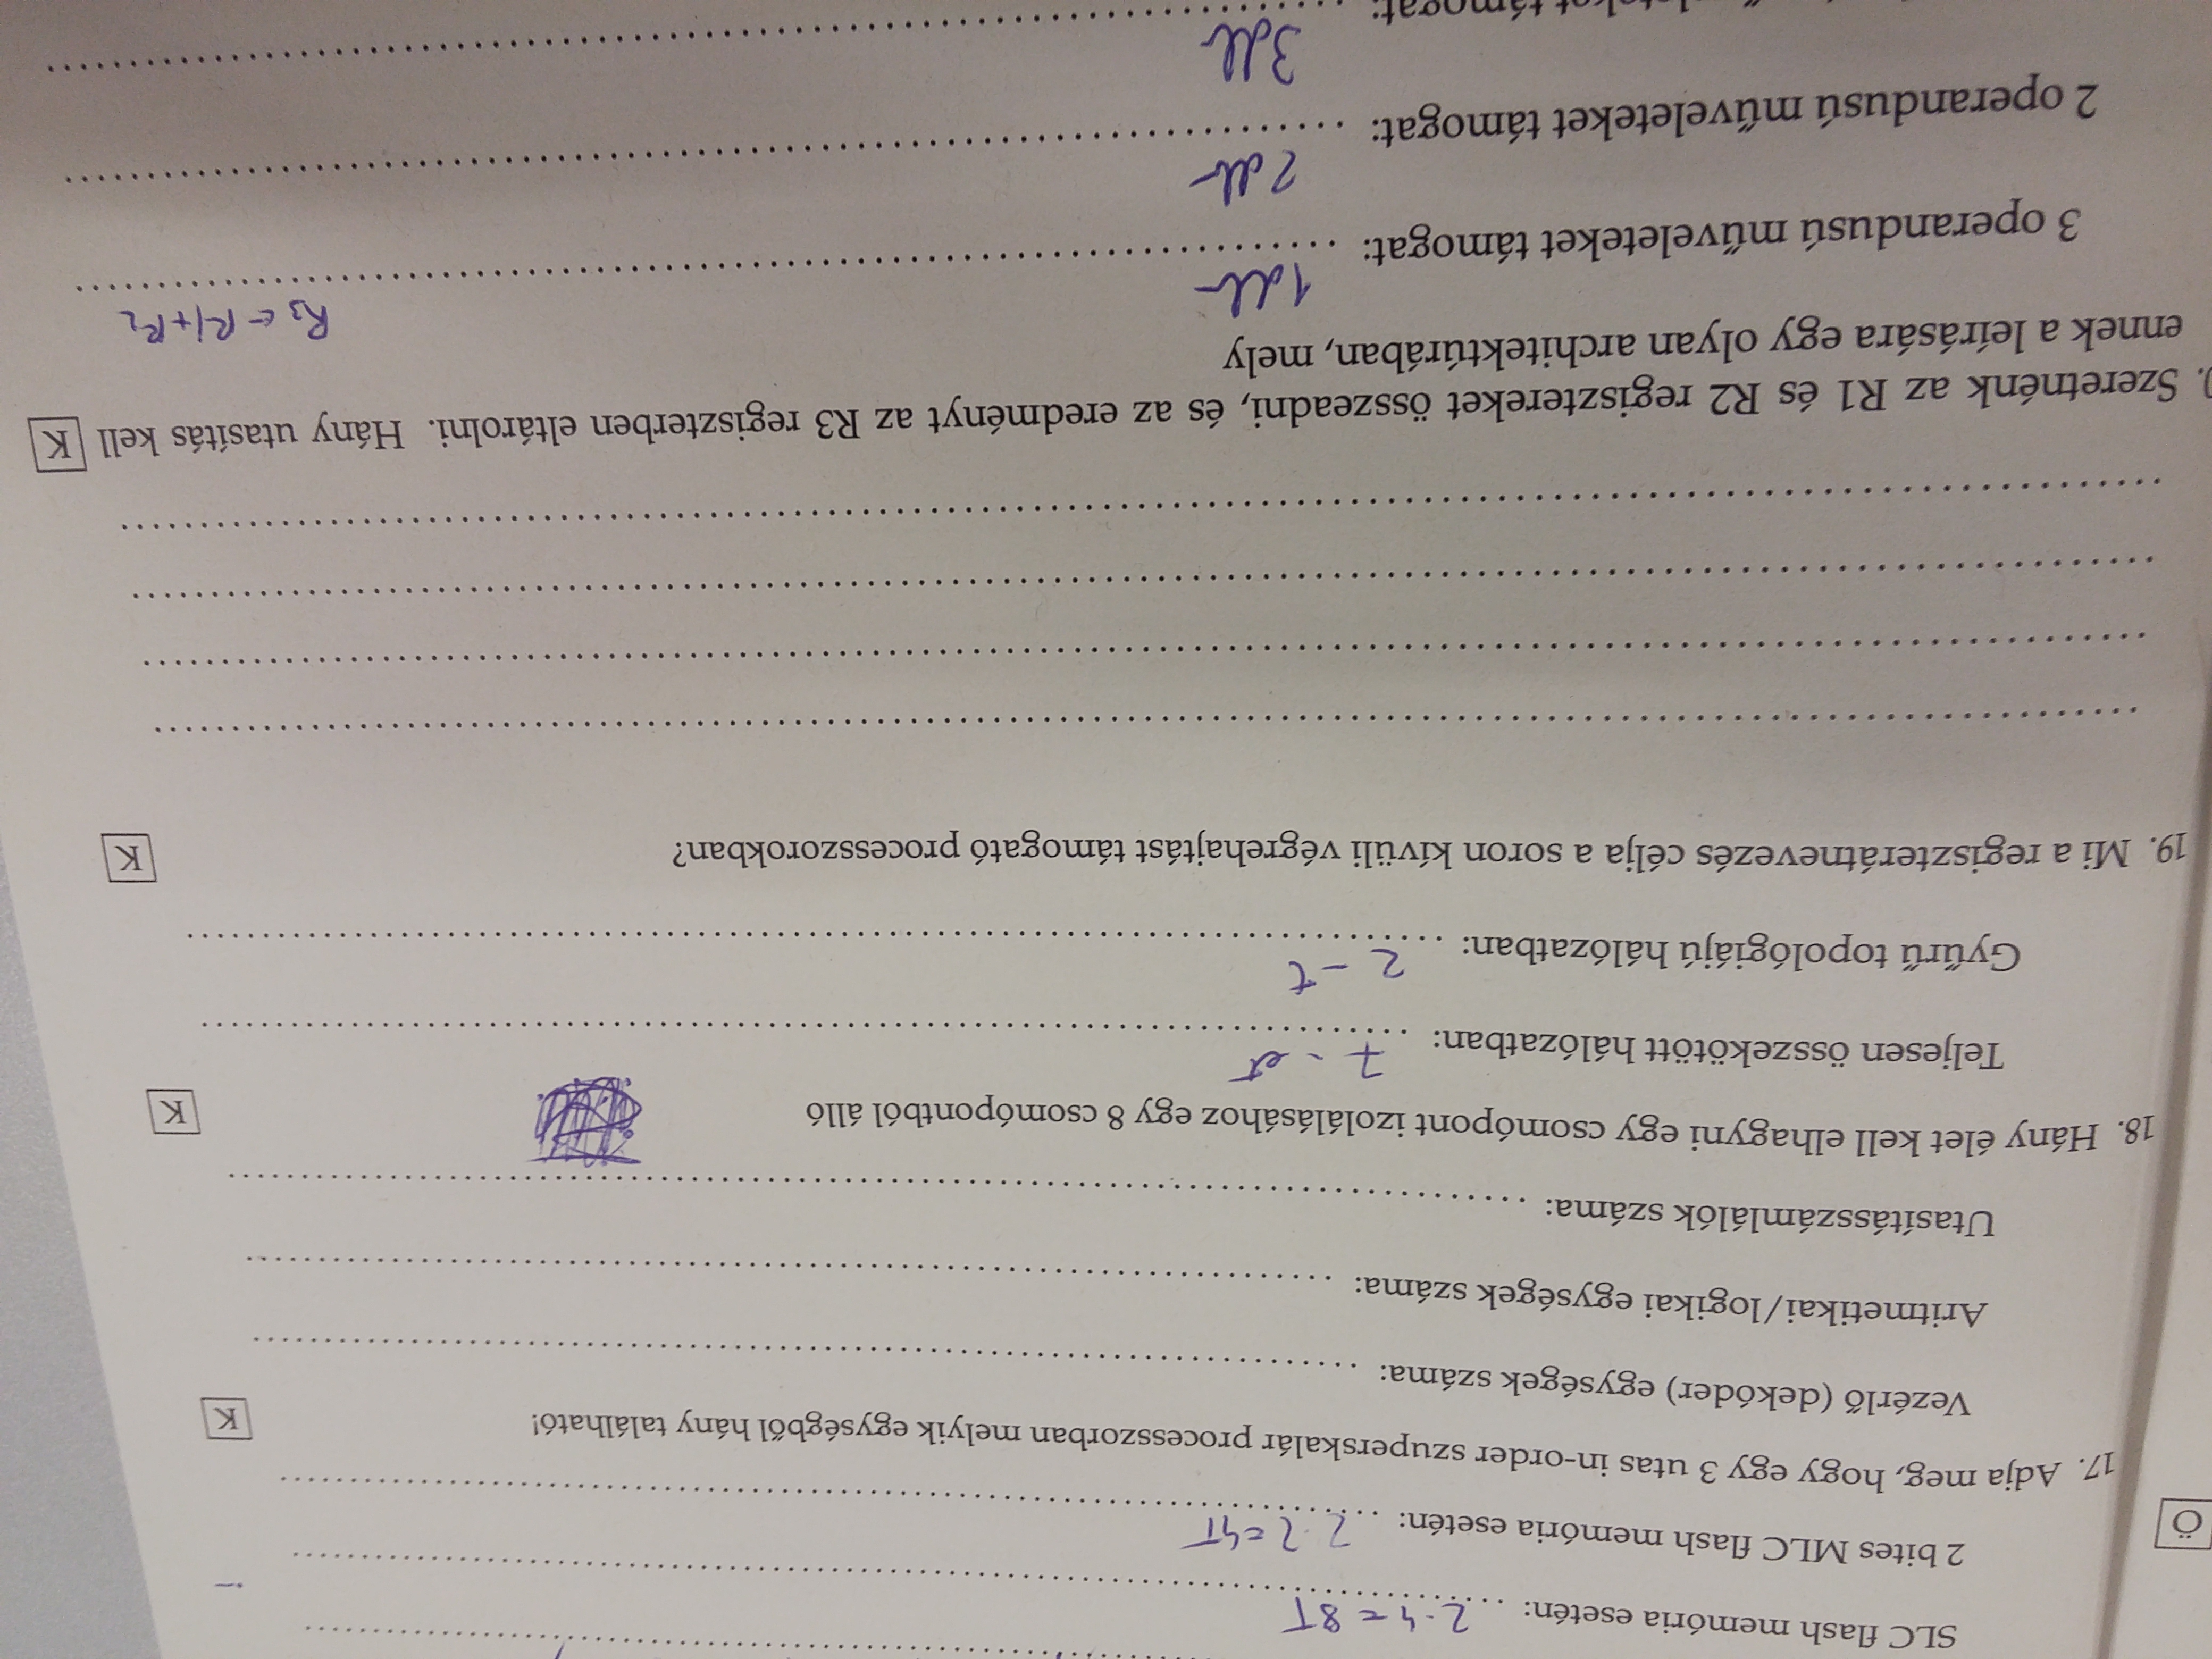 SLC flash memória esetén: 2·4 = 8T
2 bites MLC flash memória esetén: 2·2=4T
Ö
17. Adja meg, hogy egy 3 utas in-order szuperskalár processzorban melyik egységből hány található! K
Vezérlő (dekóder) egységek száma:
Aritmetikai/logikai egységek száma:
Utasításszámlálók száma:
18. Hány élet kell elhagyni egy csomópont izolálásához egy 8 csomópontból álló K
Teljesen összekötött hálózatban: 7 - et
Gyűrű topológiájú hálózatban: 2 - t
19. Mi a regiszterátnevezés célja a soron kívüli végrehajtást támogató processzorokban? K
. Szeretnénk az R1 és R2 regisztereket összeadni, és az eredményt az R3 regiszterben eltárolni. Hány utasítás kell K
ennek a leírására egy olyan architektúrában, mely
R3 ← R1+R2
3 operandusú műveleteket támogat: 1db
2 operandusú műveleteket támogat: 2db
támogat: 3db